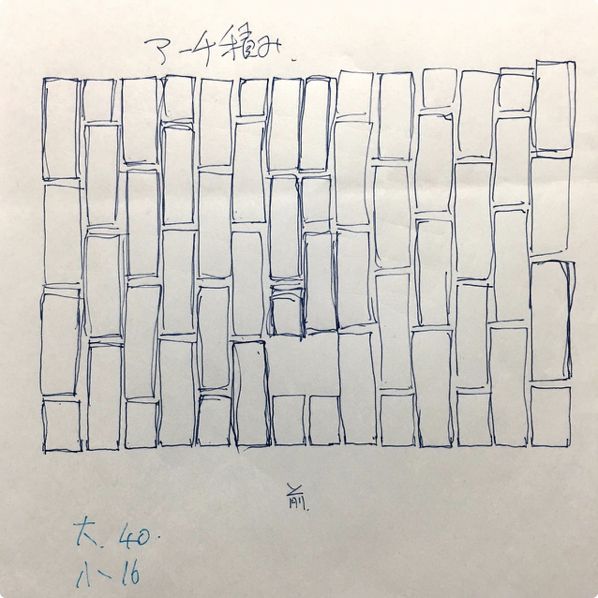 アーチ積み.
前.
大.40.
小16